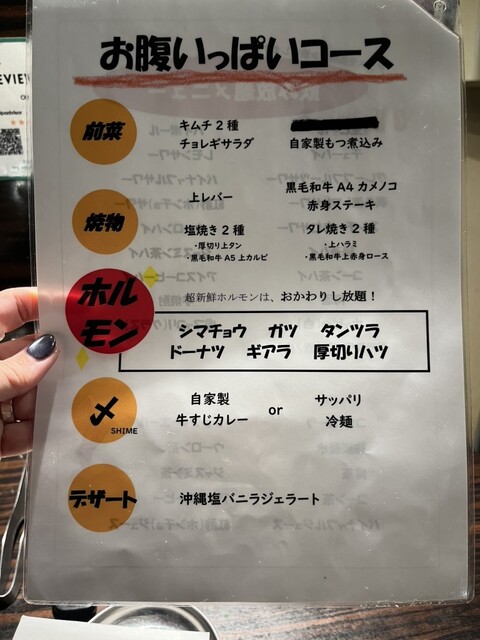 お腹いっぱいコース
前菜
キムチ2種
チョレギサラダ
自家製もつ煮込み
焼物
上レバー
黒毛和牛A4カメノコ
赤身ステーキ
塩焼き2種
・厚切り上タン
・黒毛和牛A5上カルビ
タレ焼き2種
・上ハラミ
・黒毛和牛上赤身ロース
ホル
モン
超新鮮ホルモンは、おかわりし放題！
シマチョウ ガツ タンツラ
ドーナツ ギアラ 厚切りハツ
〆
SHIME
自家製
牛すじカレー
or
サッパリ
冷麺
デザート
沖縄塩バニラジェラート